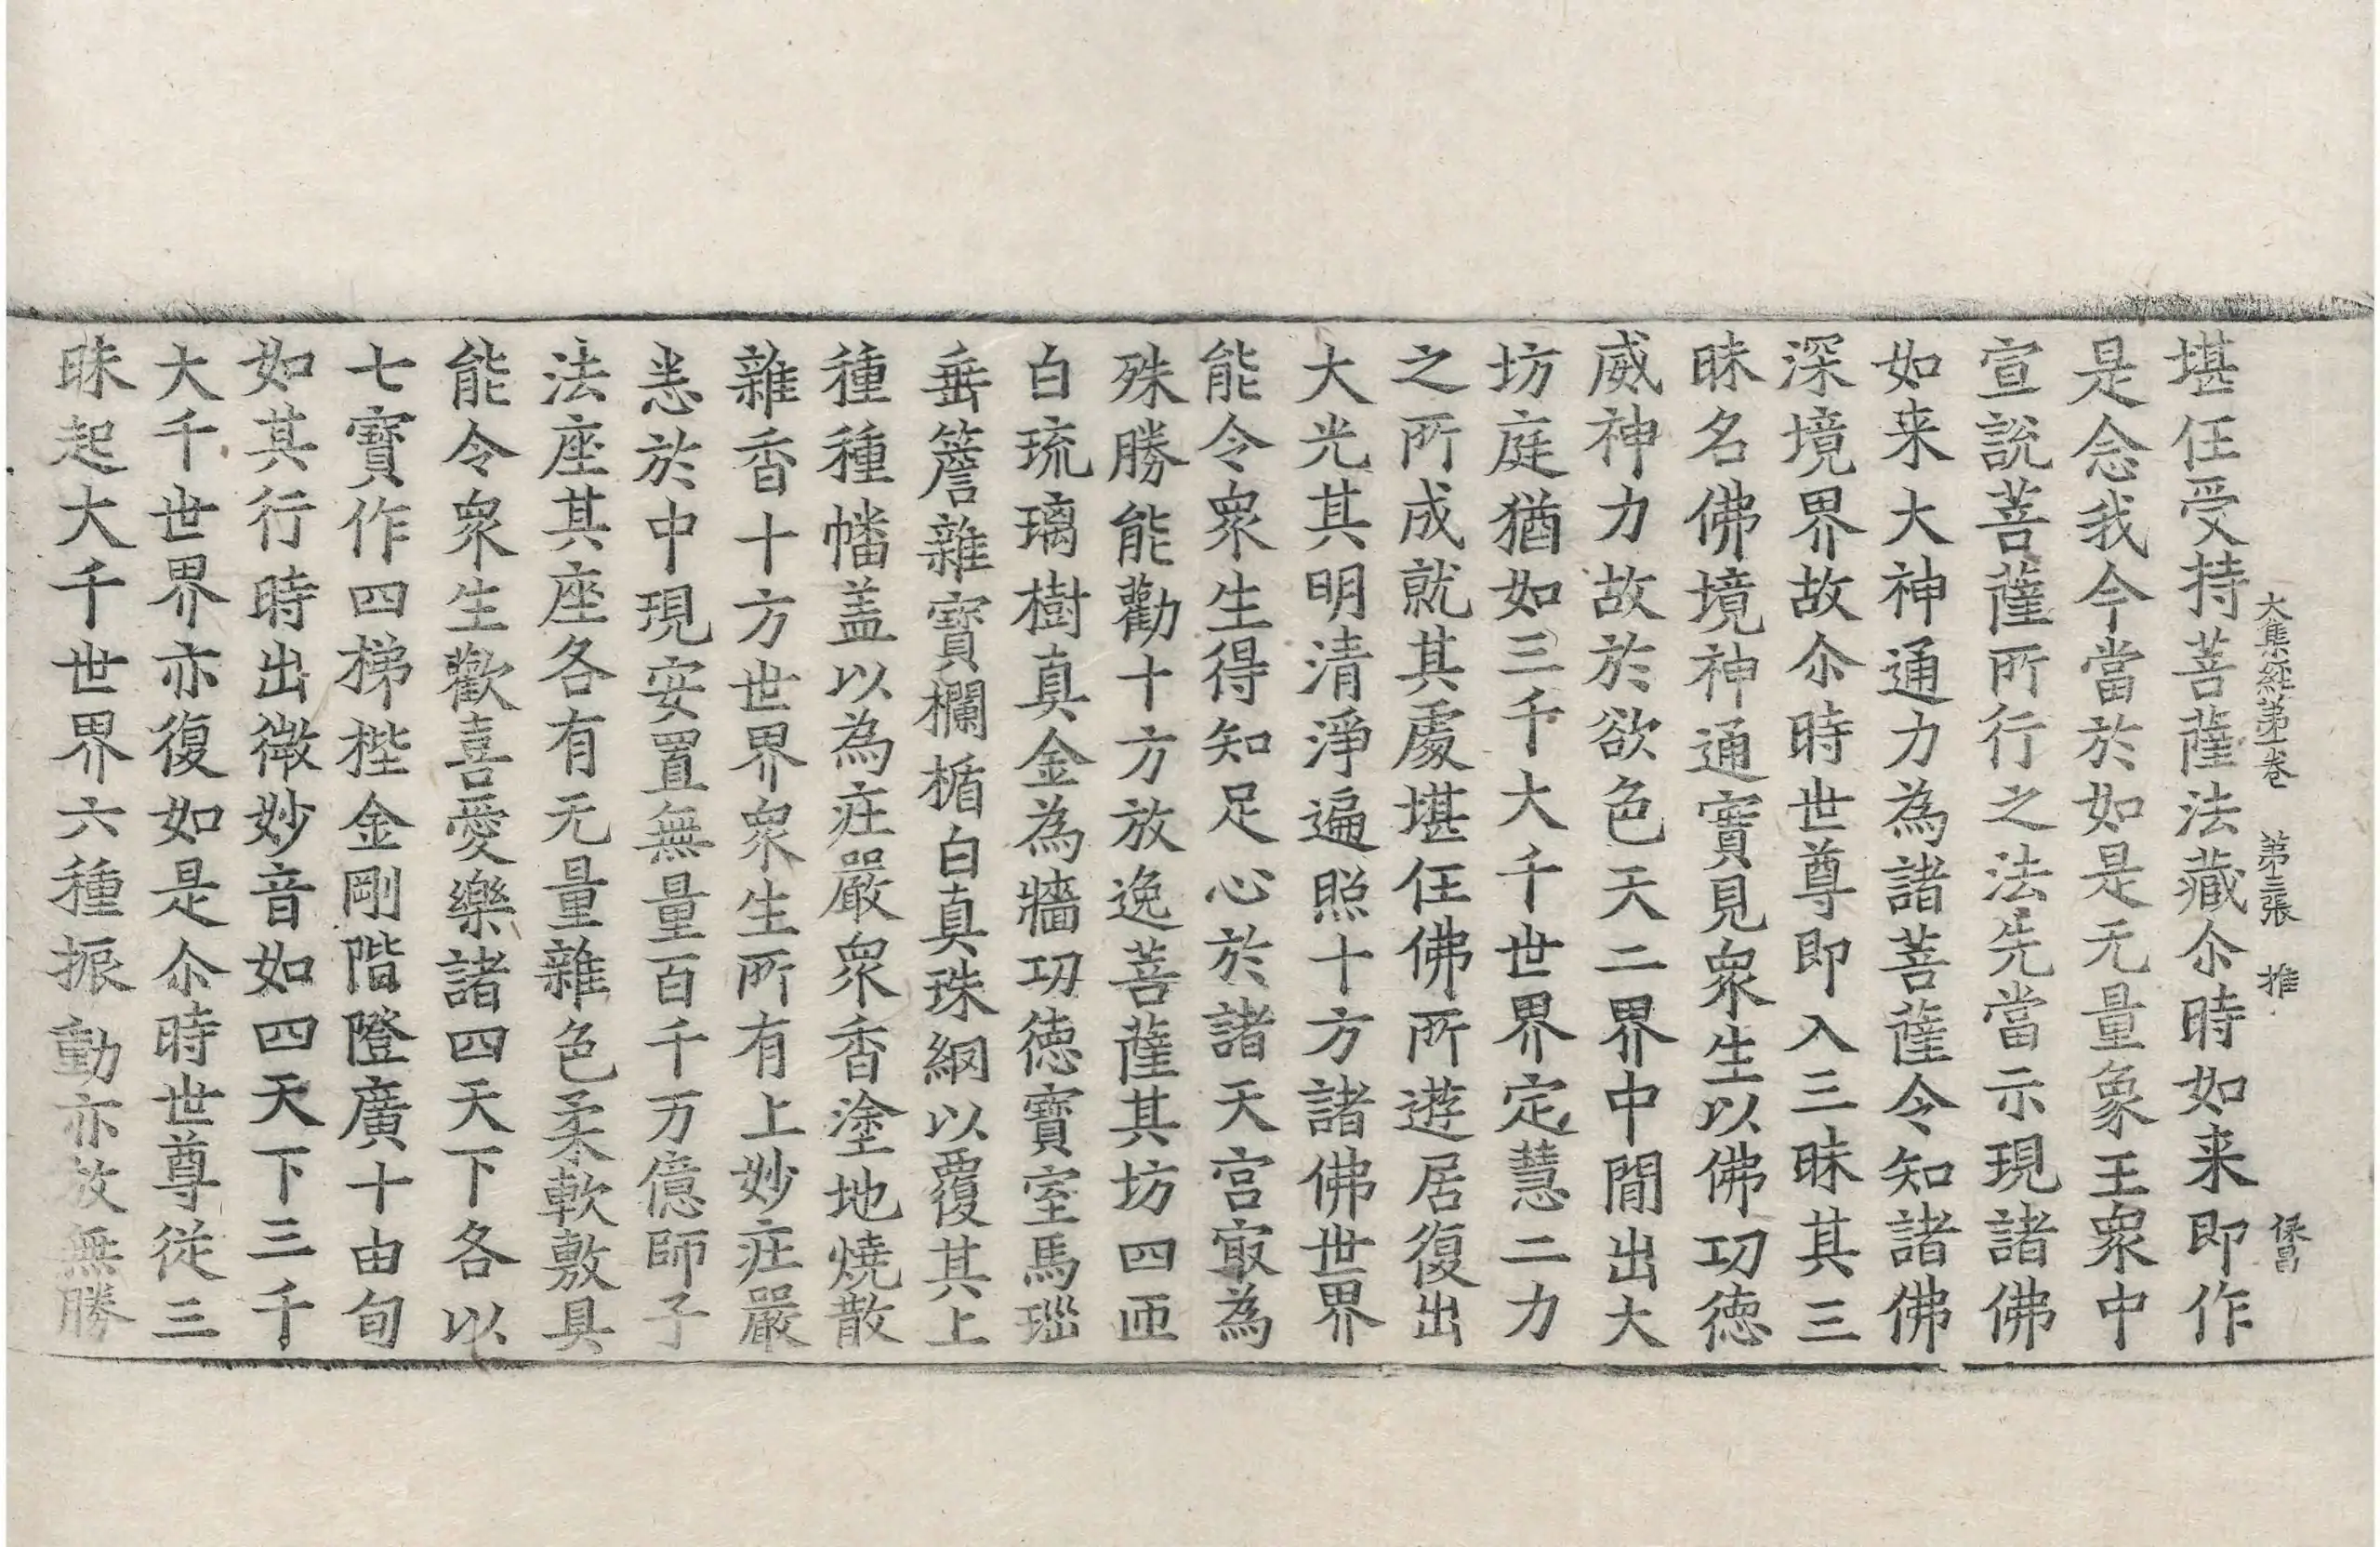 大集經第一卷 第三張 推 保昌
堪任受持菩薩法藏尒時如来即作
是念我今當於如是无量象王衆中
宣說菩薩所行之法先當示現諸佛
如来大神通力為諸菩薩令知諸佛
深境界故尒時世尊即入三昧其三
昧名佛境神通寶見衆生以佛功德
威神力故於欲色天二界中閒出大
坊庭猶如三千大千世界定慧二力
之所成就其處堪任佛所遊居復出
大光其明清淨遍照十方諸佛世界
能令衆生得知足心於諸天宫㝡為
殊勝能勸十方放逸菩薩其坊四面
白琉璃樹真金為牆功德寶室馬瑙
垂簷雜寶欄楯白真珠網以覆其上
種種幡盖以為庄嚴衆香塗地燒散
雜香十方世界衆生所有上妙庄嚴
悉於中現安置無量百千万億師子
法座其座各有无量雜色柔軟敷具
能令衆生歡喜愛樂諸四天下各以
七寶作四梯桯金剛階隥廣十由旬
如其行時出微妙音如四天下三千
大千世界亦復如是尒時世尊從三
昧起大千世界六種振動亦放無勝